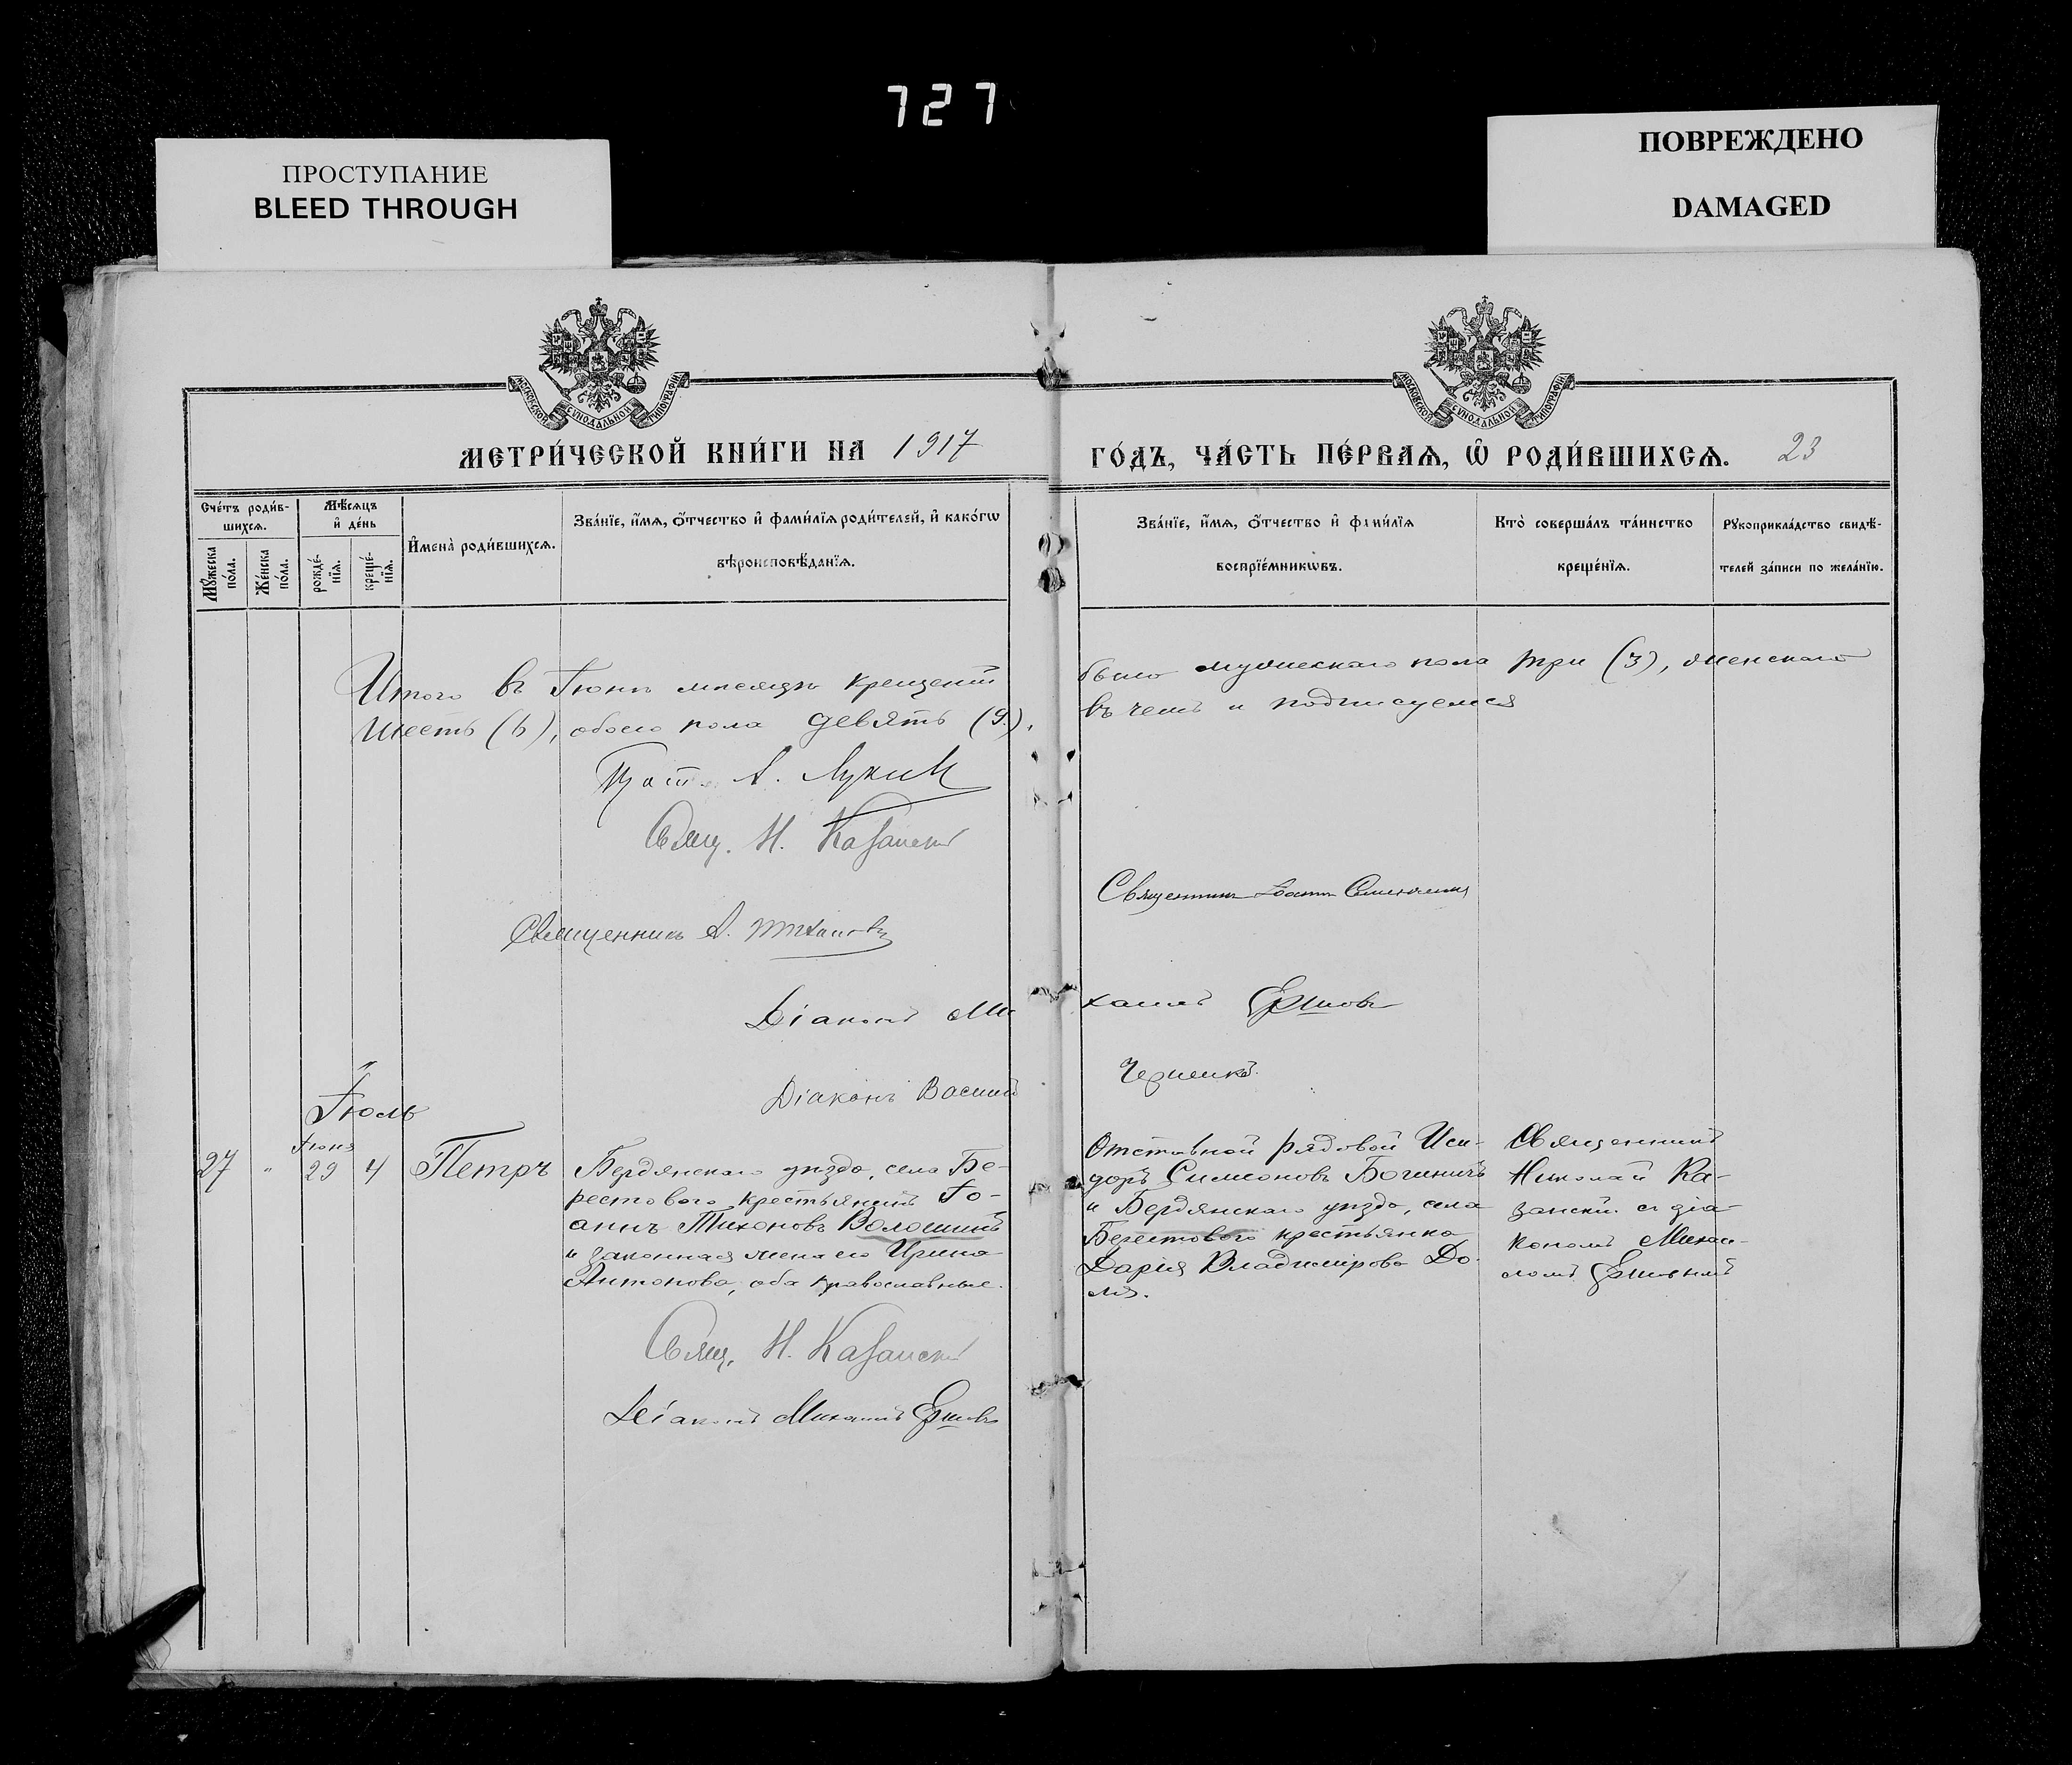 727
ПРОСТУПАНИЕ
BLEED THROUGH
ПОВРЕЖДЕНО
DAMAGED
МОСКОВСКОЙ СѴНОДАЛЬНОЙ ТИПОГРАФІИ
МОСКОВСКОЙ СѴНОДАЛЬНОЙ ТИПОГРАФІИ
МЕТРИ́ЧЕСКОЙ КНИ́ГИ НА 1917
ГО́ДЪ, ЧА́СТЬ ПЕ́РВАѦ, Ѽ РОДИ́ВШИХСѦ. 23
Сче́тъ роди́в-
шихсѧ.
Мꙋ́жеска
по́ла.
Же́нска
по́ла.
Мѣ́сѧцъ
и҆ де́нь
рожде́-
нїѧ.
креще́-
нїѧ.
И҆мена̀ роди́вшихсѧ.
Зва́нїе, и҆́мѧ, ѻ҆́тчество и҆ фами́лїѧ роди́телей, и҆ како́гѡ
вѣроисповѣ́данїѧ.
Зва́нїе, и҆́мѧ, ѻ҆́тчество и҆ фами́лїѧ
воспрїе́мникѡвъ.
Кто̀ соверша́лъ та́инство
креще́нїѧ.
Рꙋкоприкла́дство свидѣ́-
телей за́писи по жела́нїю.
Итого въ Іюнѣ мѣсяцѣ крещеній
было мужескаго пола три (3), женскаго
шесть (6), обоего пола девять (9),
въ чемъ и подписуемся
Прот. А. Лукин
Свящ. Н. Казанскій
Священникъ Іоаннъ
Священникъ А.
Діаконъ Ми
хаилъ Ершовъ
Діаконъ Василій
Іюль
27 " Іюня 29 4 Петръ
Бердянскаго уѣзда, села Бе-
рестового крестьянинъ Іо-
аннъ Тихоновъ Волошинъ
и законная жена его Ирина
Антонова, оба православные.
Отставной рядовой Иси-
доръ Симеоновъ
и Бердянскаго уѣзда, села
Берестового крестьянка
Дарія Владимірова До-
ля.
Священникъ
Николай Ка-
занскій съ діа-
кономъ Михаи-
ломъ Ершовымъ
Свящ. Н. Казанскій
Діаконъ Михаилъ Ершовъ